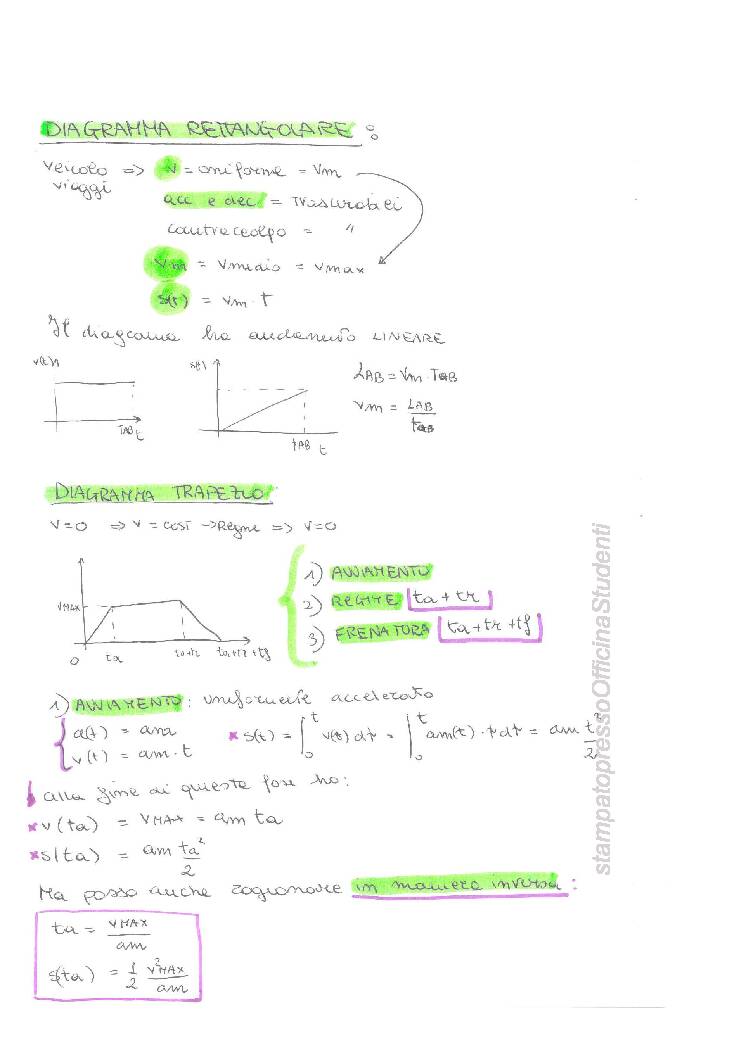 DIAGRAMMA RETTANGOLARE :
veicolo => v = uniforme = vm
viaggi
acc e dec = trascurabili
contraccolpo = "
vm = vmedio = vmax
s(t) = vm · t
Il diagramma ha andamento LINEARE
v(t)
TAB t
s(t)
tAB t
LAB = vm · TAB
vm = LAB / tAB
DIAGRAMMA TRAPEZIO
v=0 => v = cost -> Regime => v=0
VMAX
0 ta ta+tr ta+tr+tf
1) AVVIAMENTO
2) REGIME ta + tr
3) FRENATURA ta + tr + tf
1) AVVIAMENTO : uniformente accelerato
a(t) = am
v(t) = am · t
* s(t) = ∫₀ᵗ v(t) dt = ∫₀ᵗ am(t) · t dt = am t²/2
alla fine di questa fase ho:
* v(ta) = VMAX = am ta
* s(ta) = am ta²/2
Ma posso anche ragionare in maniera inversa :
ta = VMAX / am
s(ta) = 1/2 v²MAX / am
stampatopressoOfficinaStudenti